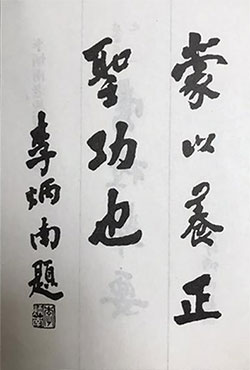 蒙以養正
聖功也
李炳南題